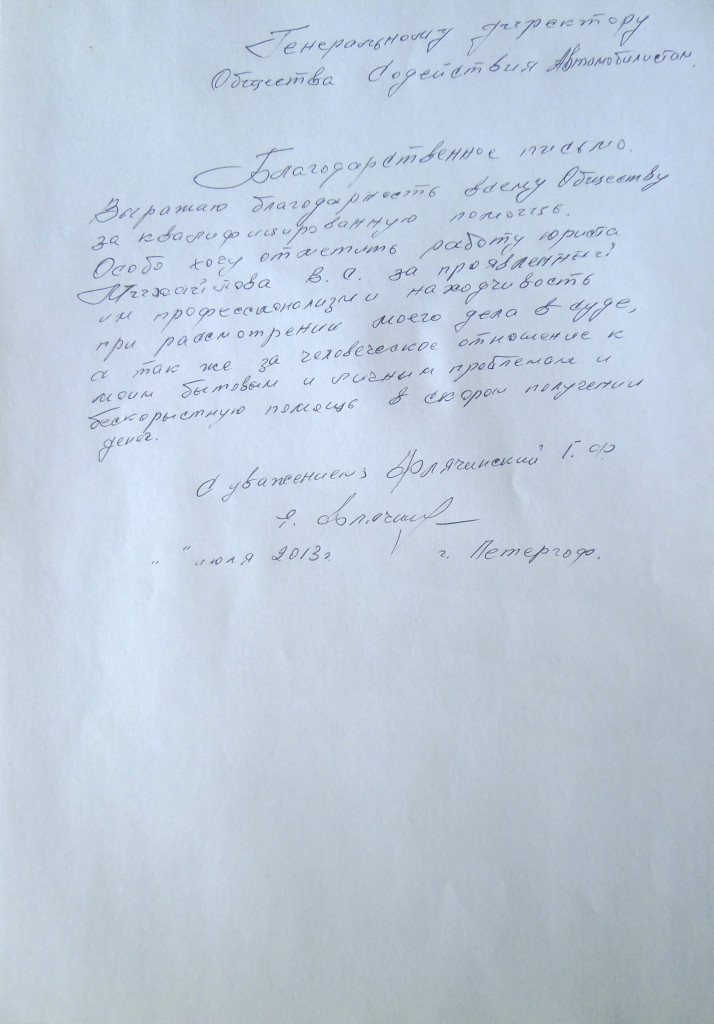 Генеральному директору
Общества Содействия Автомобилистам.
Благодарственное письмо.
Выражаю благодарность всему Обществу
за квалифицированную помощь.
Особо хочу отметить работу юриста
Михайлова В. С. за проявленный
им профессионализм и находчивость
при рассмотрении моего дела в суде,
а так же за человеческое отношение к
моим бытовым и личным проблемам и
бескорыстную помощь в скором получении
денег.
С уважением, Г. Ф.
" " июля 2013 г. г. Петергоф.